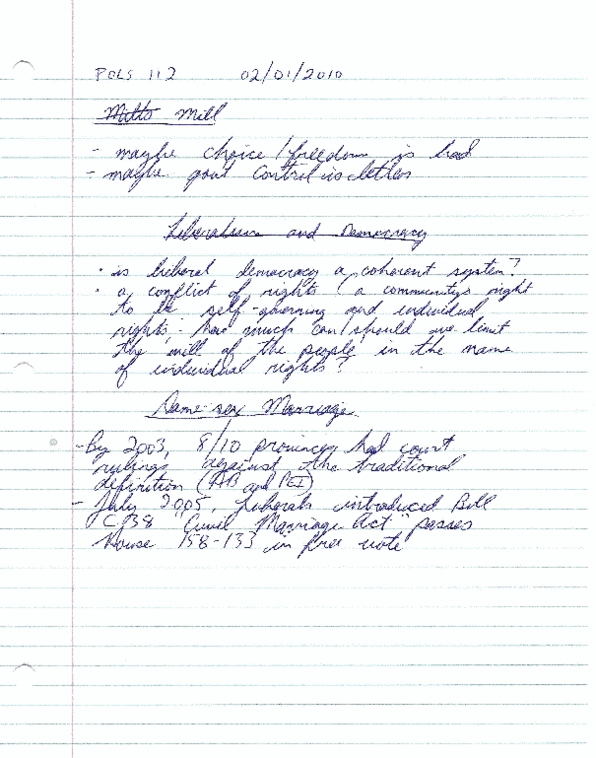 POLS 112 02/01/2010
Mitto Mill
- maybe choice/freedom is bad
- maybe gout control is better
Liberalism and Democracy
• is liberal democracy a coherent system?
• a conflict of rights (a community's right
to be self-governing and individual
rights - how much can/should we limit
the will of the people in the name
of individual rights?
Same-sex Marriage
- By 2003, 8/10 provinces had court
rulings against the traditional
definition (AB and PEI)
- July 2005, Liberals introduced Bill
C-38 "Civil Marriage Act" passes
House 158-133 in free vote